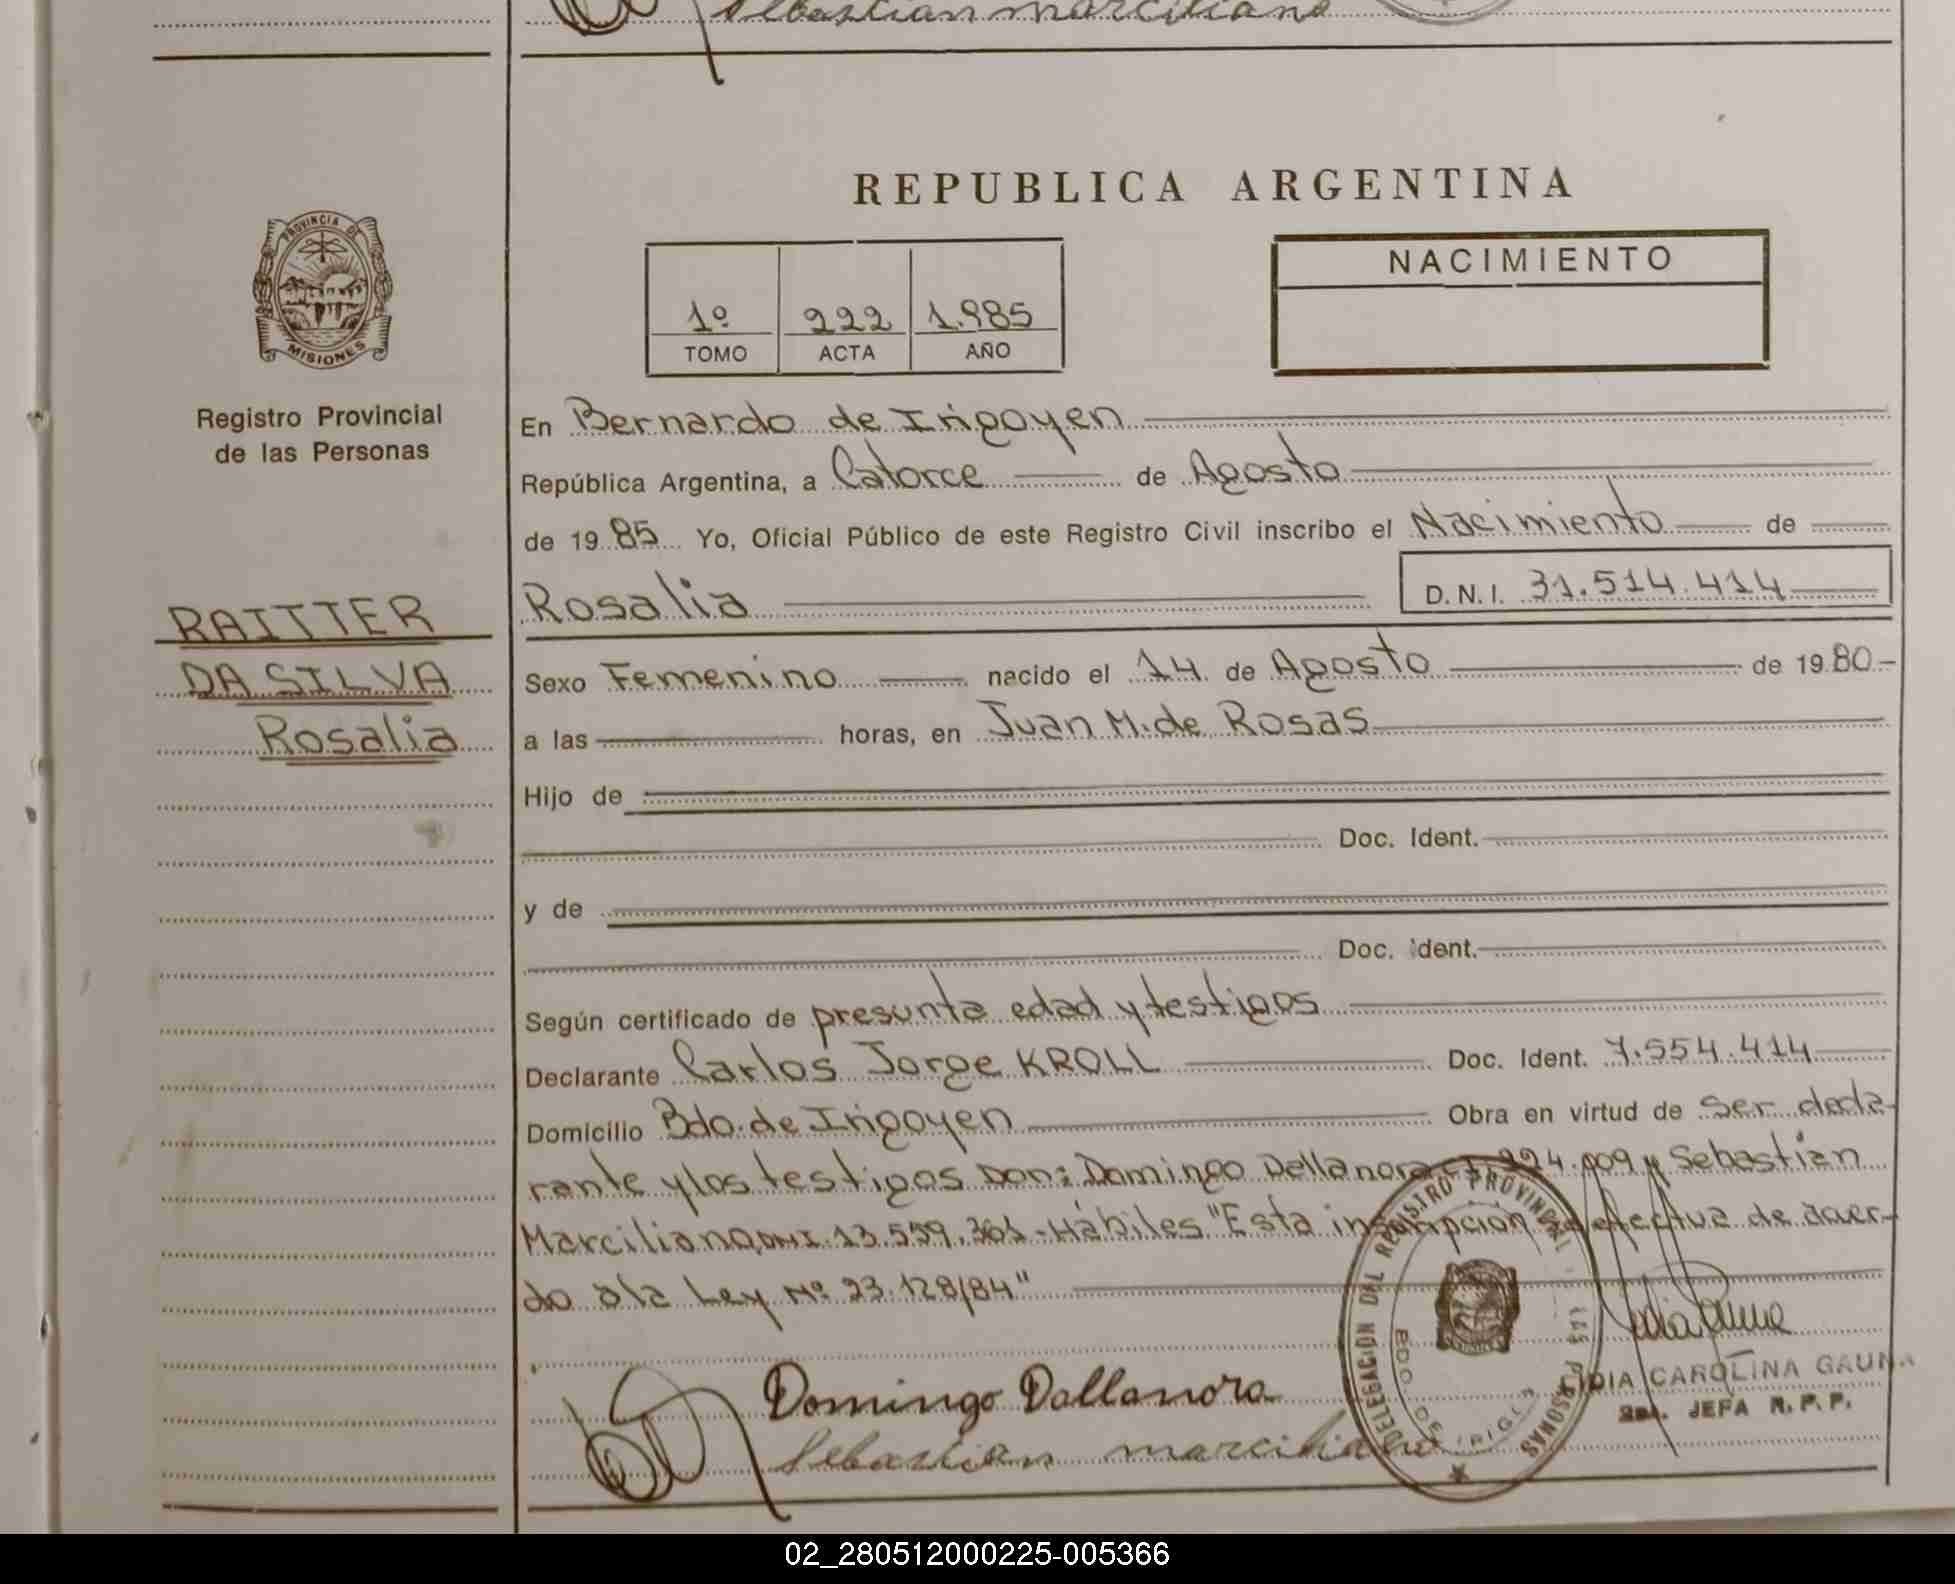 Sebastian marciliano
REPUBLICA ARGENTINA
PROVINCIA DE
MISIONES
Registro Provincial
de las Personas
RAITTER
DA SILVA
Rosalia
1º 222 1.985
TOMO ACTA AÑO
NACIMIENTO
En Bernardo de Irigoyen
República Argentina, a Catorce de Agosto
de 1985 Yo, Oficial Público de este Registro Civil inscribo el Nacimiento de
Rosalia D.N.I. 31.514.414
Sexo Femenino nacido el 14 de Agosto de 1980
a las horas, en Juan M. de Rosas
Hijo de
Doc. Ident.
y de
Doc. Ident.
Según certificado de presunta edad y testigos
Declarante Carlos Jorge KROLL Doc. Ident. 7.554.414
Domicilio Bdo. de Irigoyen Obra en virtud de ser decla-
rante y los testigos Don: Domingo Dellanora 009 y Sebastián
Marciliano, DNI. 13.559.361 - Hábiles "Esta inscripción se efectua de acuer-
do a la Ley Nº 23.128/84"
Domingo Dallanora
Sebastian marciliano
DELEGACION DEL REGISTRO PROVINCIAL LAS PERSONAS
BDO. DE
LIDIA CAROLINA GAUNA
JEFA R.P.P.
02_280512000225-005366